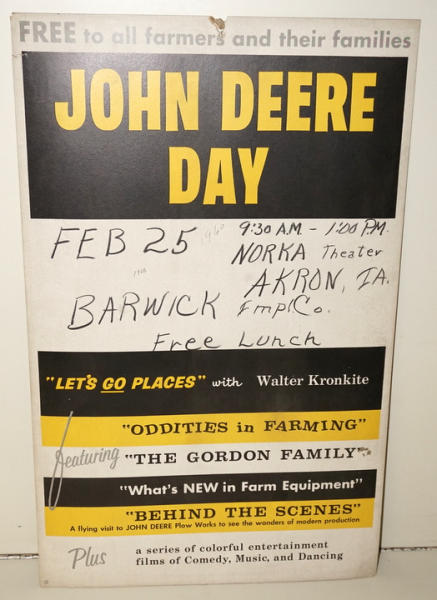 FREE to all farmers and their families
JOHN DEERE
DAY
FEB 25 9:30 A.M. - 1:00 P.M.
NORKA Theater
AKRON, IA.
BARWICK Impl Co.
Free Lunch
"LET'S GO PLACES" with Walter Kronkite
"ODDITIES in FARMING"
featuring "THE GORDON FAMILY"
"What's NEW in Farm Equipment"
"BEHIND THE SCENES"
A flying visit to JOHN DEERE Plow Works to see the wonders of modern production
Plus a series of colorful entertainment
films of Comedy, Music, and Dancing